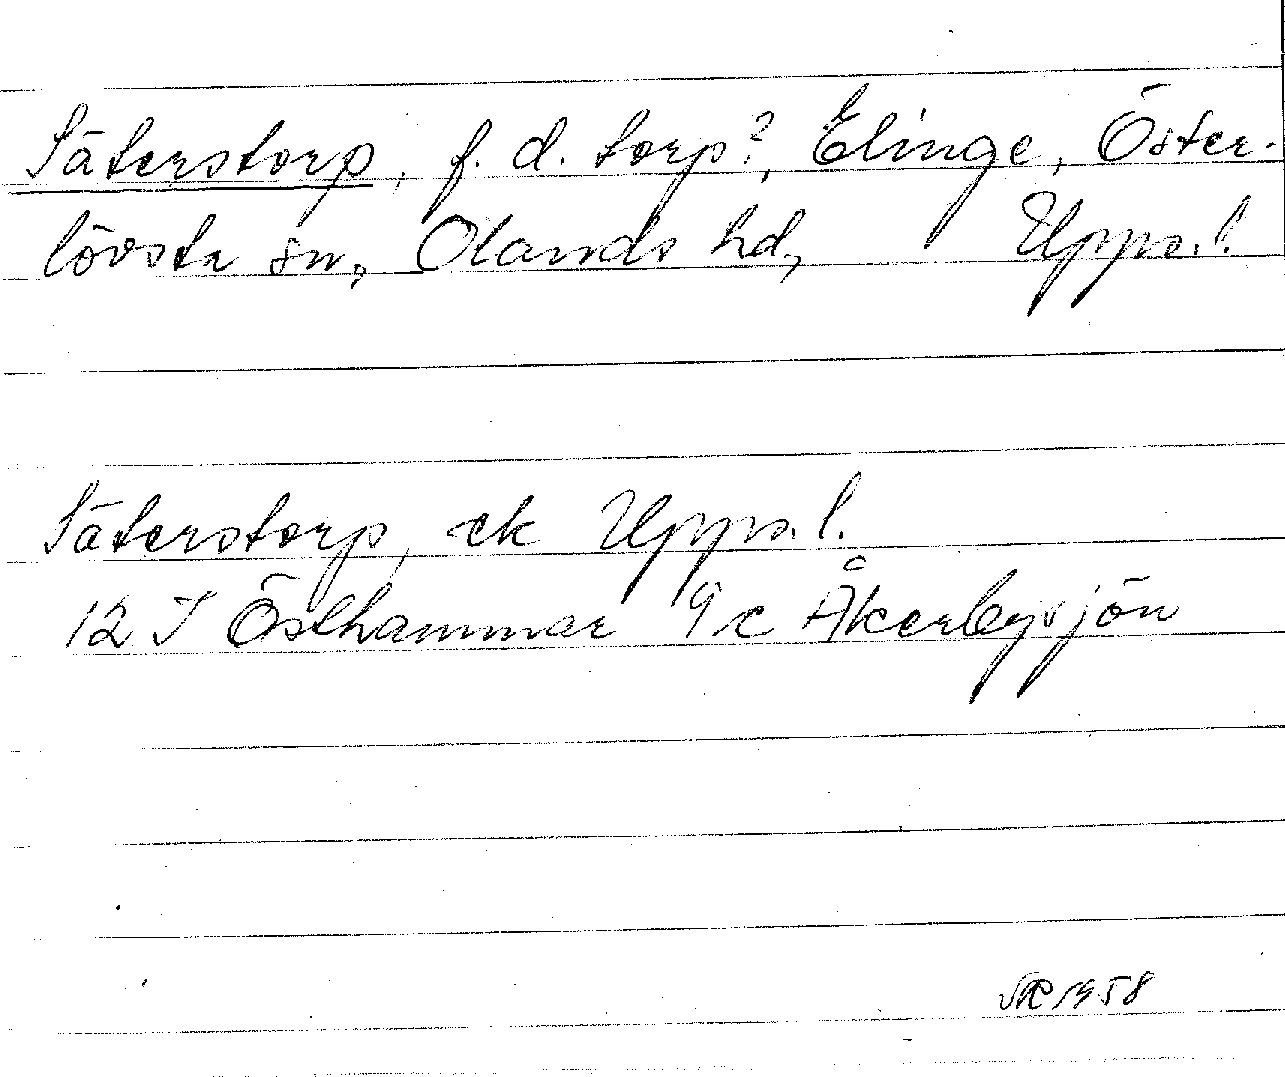 Säterstorp, f. d. torp?, Elinge, Öster-
lövsta sn, Olands hd, Upps. l.
Säterstorp, ek Upps. l.
12 I Östhammar 9 c Åkerbysjön
1958